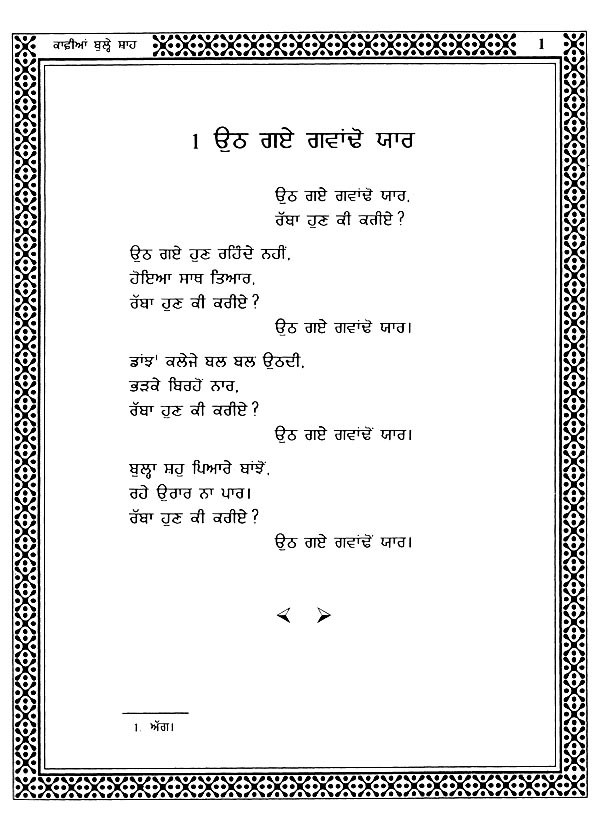 ਕਾਫ਼ੀਆਂ ਬੁਲ੍ਹੇ ਸ਼ਾਹ 1
1 ਉਠ ਗਏ ਗਵਾਂਢੋ ਯਾਰ
ਉਠ ਗਏ ਗਵਾਂਢੋ ਯਾਰ,
ਰੱਬਾ ਹੁਣ ਕੀ ਕਰੀਏ ?
ਉਠ ਗਏ ਹੁਣ ਰਹਿੰਦੇ ਨਹੀਂ,
ਹੋਇਆ ਸਾਥ ਤਿਆਰ,
ਰੱਬਾ ਹੁਣ ਕੀ ਕਰੀਏ ?
ਉਠ ਗਏ ਗਵਾਂਢੋ ਯਾਰ।
ਡਾਂਝ¹ ਕਲੇਜੇ ਬਲ ਬਲ ਉਠਦੀ,
ਭੜਕੇ ਬਿਰਹੋਂ ਨਾਰ,
ਰੱਬਾ ਹੁਣ ਕੀ ਕਰੀਏ ?
ਉਠ ਗਏ ਗਵਾਂਢੋਂ ਯਾਰ।
ਬੁਲ੍ਹਾ ਸ਼ਹੁ ਪਿਆਰੇ ਬਾਂਝੋਂ,
ਰਹੇ ਉਰਾਰ ਨਾ ਪਾਰ।
ਰੱਬਾ ਹੁਣ ਕੀ ਕਰੀਏ ?
ਉਠ ਗਏ ਗਵਾਂਢੋਂ ਯਾਰ।
1. ਅੱਗ।